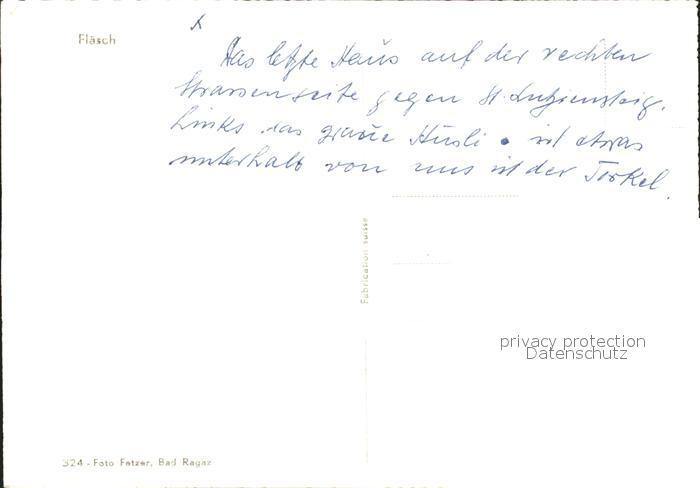 Fläsch
x
Das letzte Haus auf der rechten
Strassenseite gegen St. Luziensteig.
Links das graue Hüsli • ist etwas
unterhalb von uns ist der Torkel.
Fabrication suisse
privacy protection
Datenschutz
324 - Foto Fetzer, Bad Ragaz